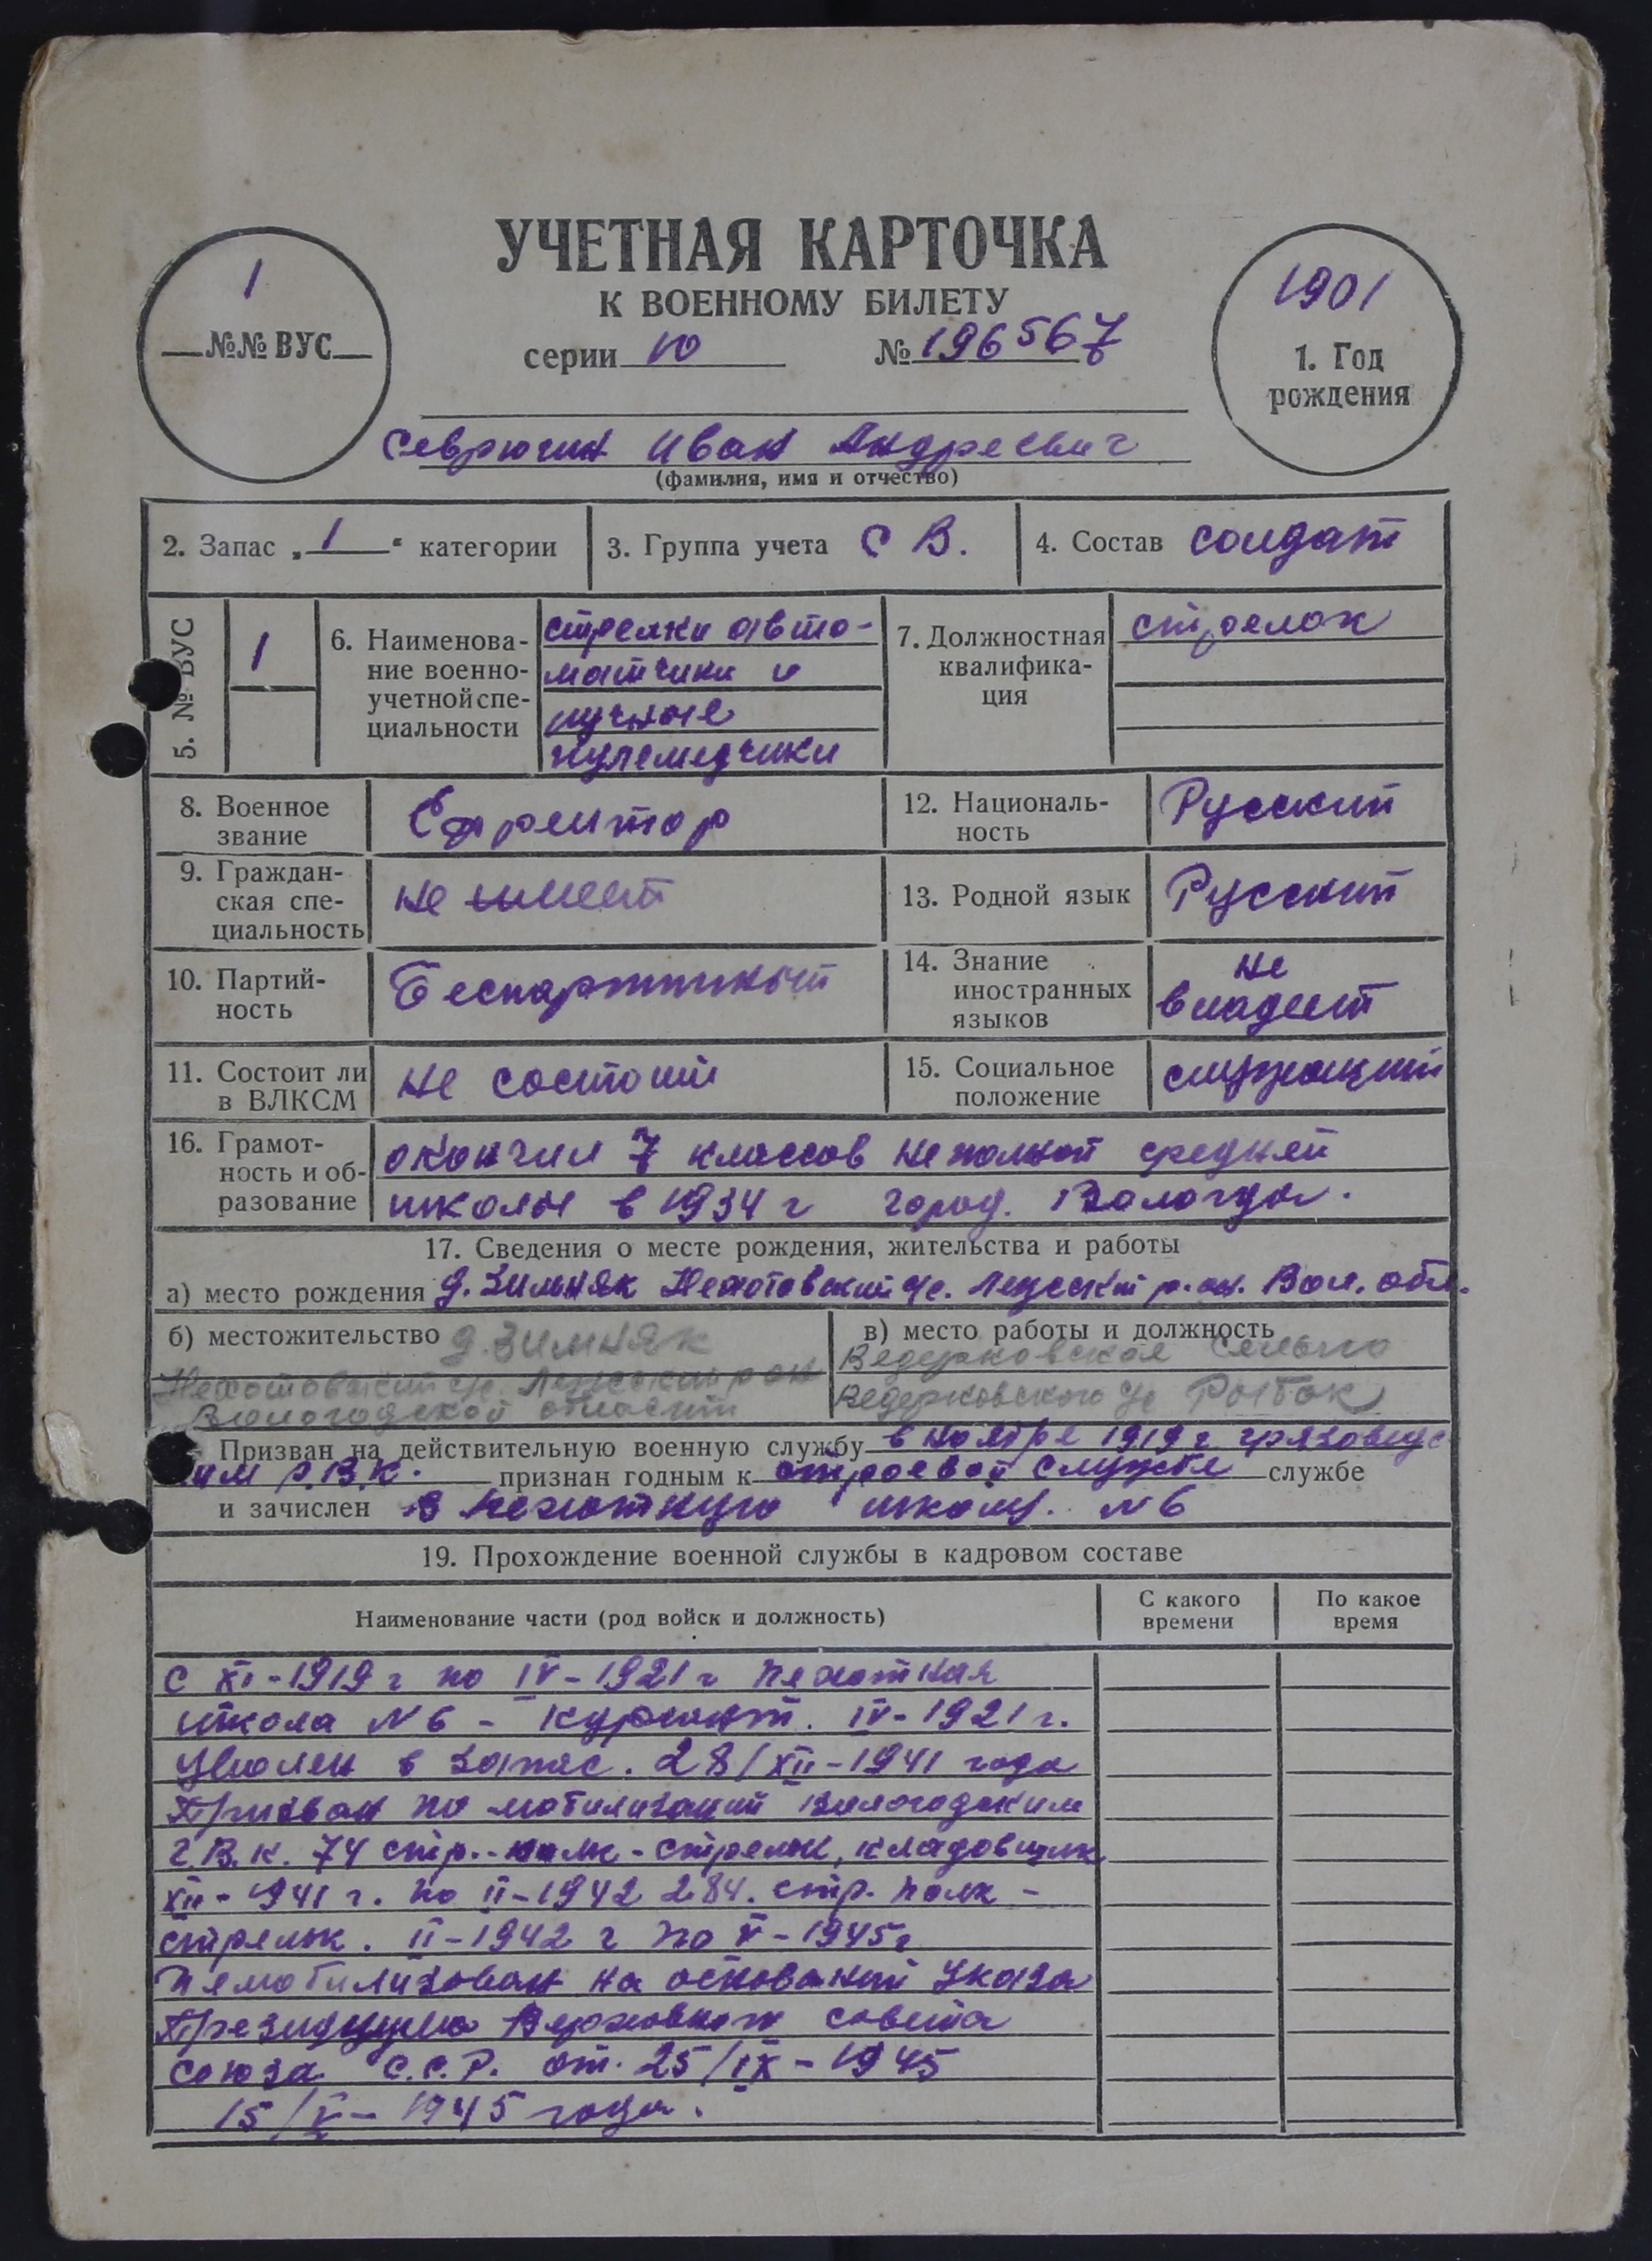 УЧЕТНАЯ КАРТОЧКА
К ВОЕННОМУ БИЛЕТУ
серии 10 № 196567
1
№№ ВУС
1901
1. Год
рождения
Севрюгин Иван Андреевич
(фамилия, имя и отчество)
2. Запас „1“ категории
3. Группа учета С В.
4. Состав солдат
5. № ВУС
1
6. Наименова-
ние военно-
учетной спе-
циальности
стрелки авто-
матчики и
ручные
пулеметчики
7. Должностная
квалифика-
ция
стрелок
8. Военное
звание
Ефрейтор
12. Националь-
ность
Русский
9. Граждан-
ская спе-
циальность
не имеет
13. Родной язык
Русский
10. Партий-
ность
Беспартийный
14. Знание
иностранных
языков
не
владеет
11. Состоит ли
в ВЛКСМ
не состоит
15. Социальное
положение
служащий
16. Грамот-
ность и об-
разование
окончил 7 классов неполной средней
школы в 1934 г город. Вологда.
17. Сведения о месте рождения, жительства и работы
а) место рождения д. Зимняк с/с. р.он. Вол. обл.
б) местожительство д. Зимняк
с/с. рон
Вологодской области
в) место работы и должность
Ведерковское Сельпо
Ведерковского с/с
Призван на действительную военную службу в ноябре 1919 г грязовецс
ким р.В.к. признан годным к строевой службе службе
и зачислен в пехотную школу. N 6
19. Прохождение военной службы в кадровом составе
Наименование части (род войск и должность)
С какого
времени
По какое
время
с XI-1919 г по IV-1921 г пехотная
школа N 6 - курсант. IV-1921 г.
Уволен в запас. 28/XII-1941 года
Призван по мобилизаций Вологодским
г.В.к. 74 стр. полк - стрелок, кладовщик
XII-1941 г. по II-1942 284. стр. полк -
стрелок. II-1942 г по V-1945 г
на оснований Указа
Президиума Верховного совета
союза С.С.Р. от. 25/IX-1945
15/X-1945 года.